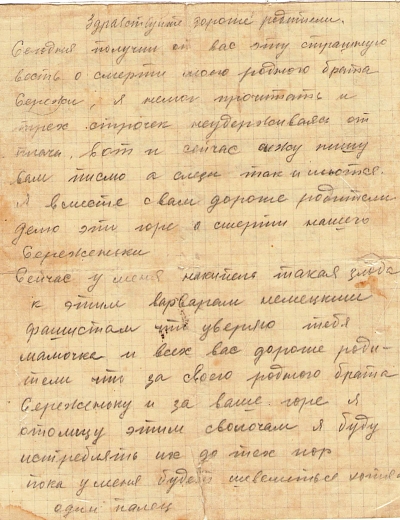 Здравствуйте дороге родители.
Сегодня получил от вас эту страшную
весть о смерти моего родного брата
Сережи, я немог прочитать и
трех строчек неудерживаясь от
плача. Вот и сейчас сижу пишу
вам писмо а слезы так и льются.
Я вместе с вам дороге родители
делю эти горе о смерти нашего
Сереженьки
Сейчас у меня накипель такая злоба
к этим варварам немецким
фашистам что уверяю тебя
мамочка и всех вас дороге роди-
тели что за своего родного брата
Сереженьку и за ваше горе я
отомщу этим сволочам я буду
истреблять их до тех пор
пока у меня будет шевелиться хотя
один палец